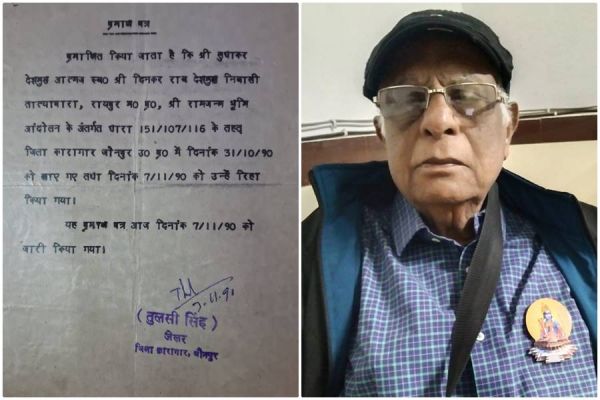 प्रमाण पत्र
प्रमाणित किया जाता है कि श्री सुधाकर
देशमुख आत्मज स्व0 श्री दिनकर राव देशमुख निवासी
तात्यापारा, रायपुर म0 प्र0, श्री रामजन्म भूमि
आंदोलन के अंतर्गत धारा 151/107/116 के तहत्
जिला कारागार जौनपुर उ0 प्र0 में दिनांक 31/10/90
को लाए गए तथा दिनांक 7/11/90 को उन्हें रिहा
किया गया।
यह प्रमाण पत्र आज दिनांक 7/11/90 को
जारी किया गया।
7.11.90
(तुलसी सिंह)
जेलर
जिला कारागार, जौनपुर